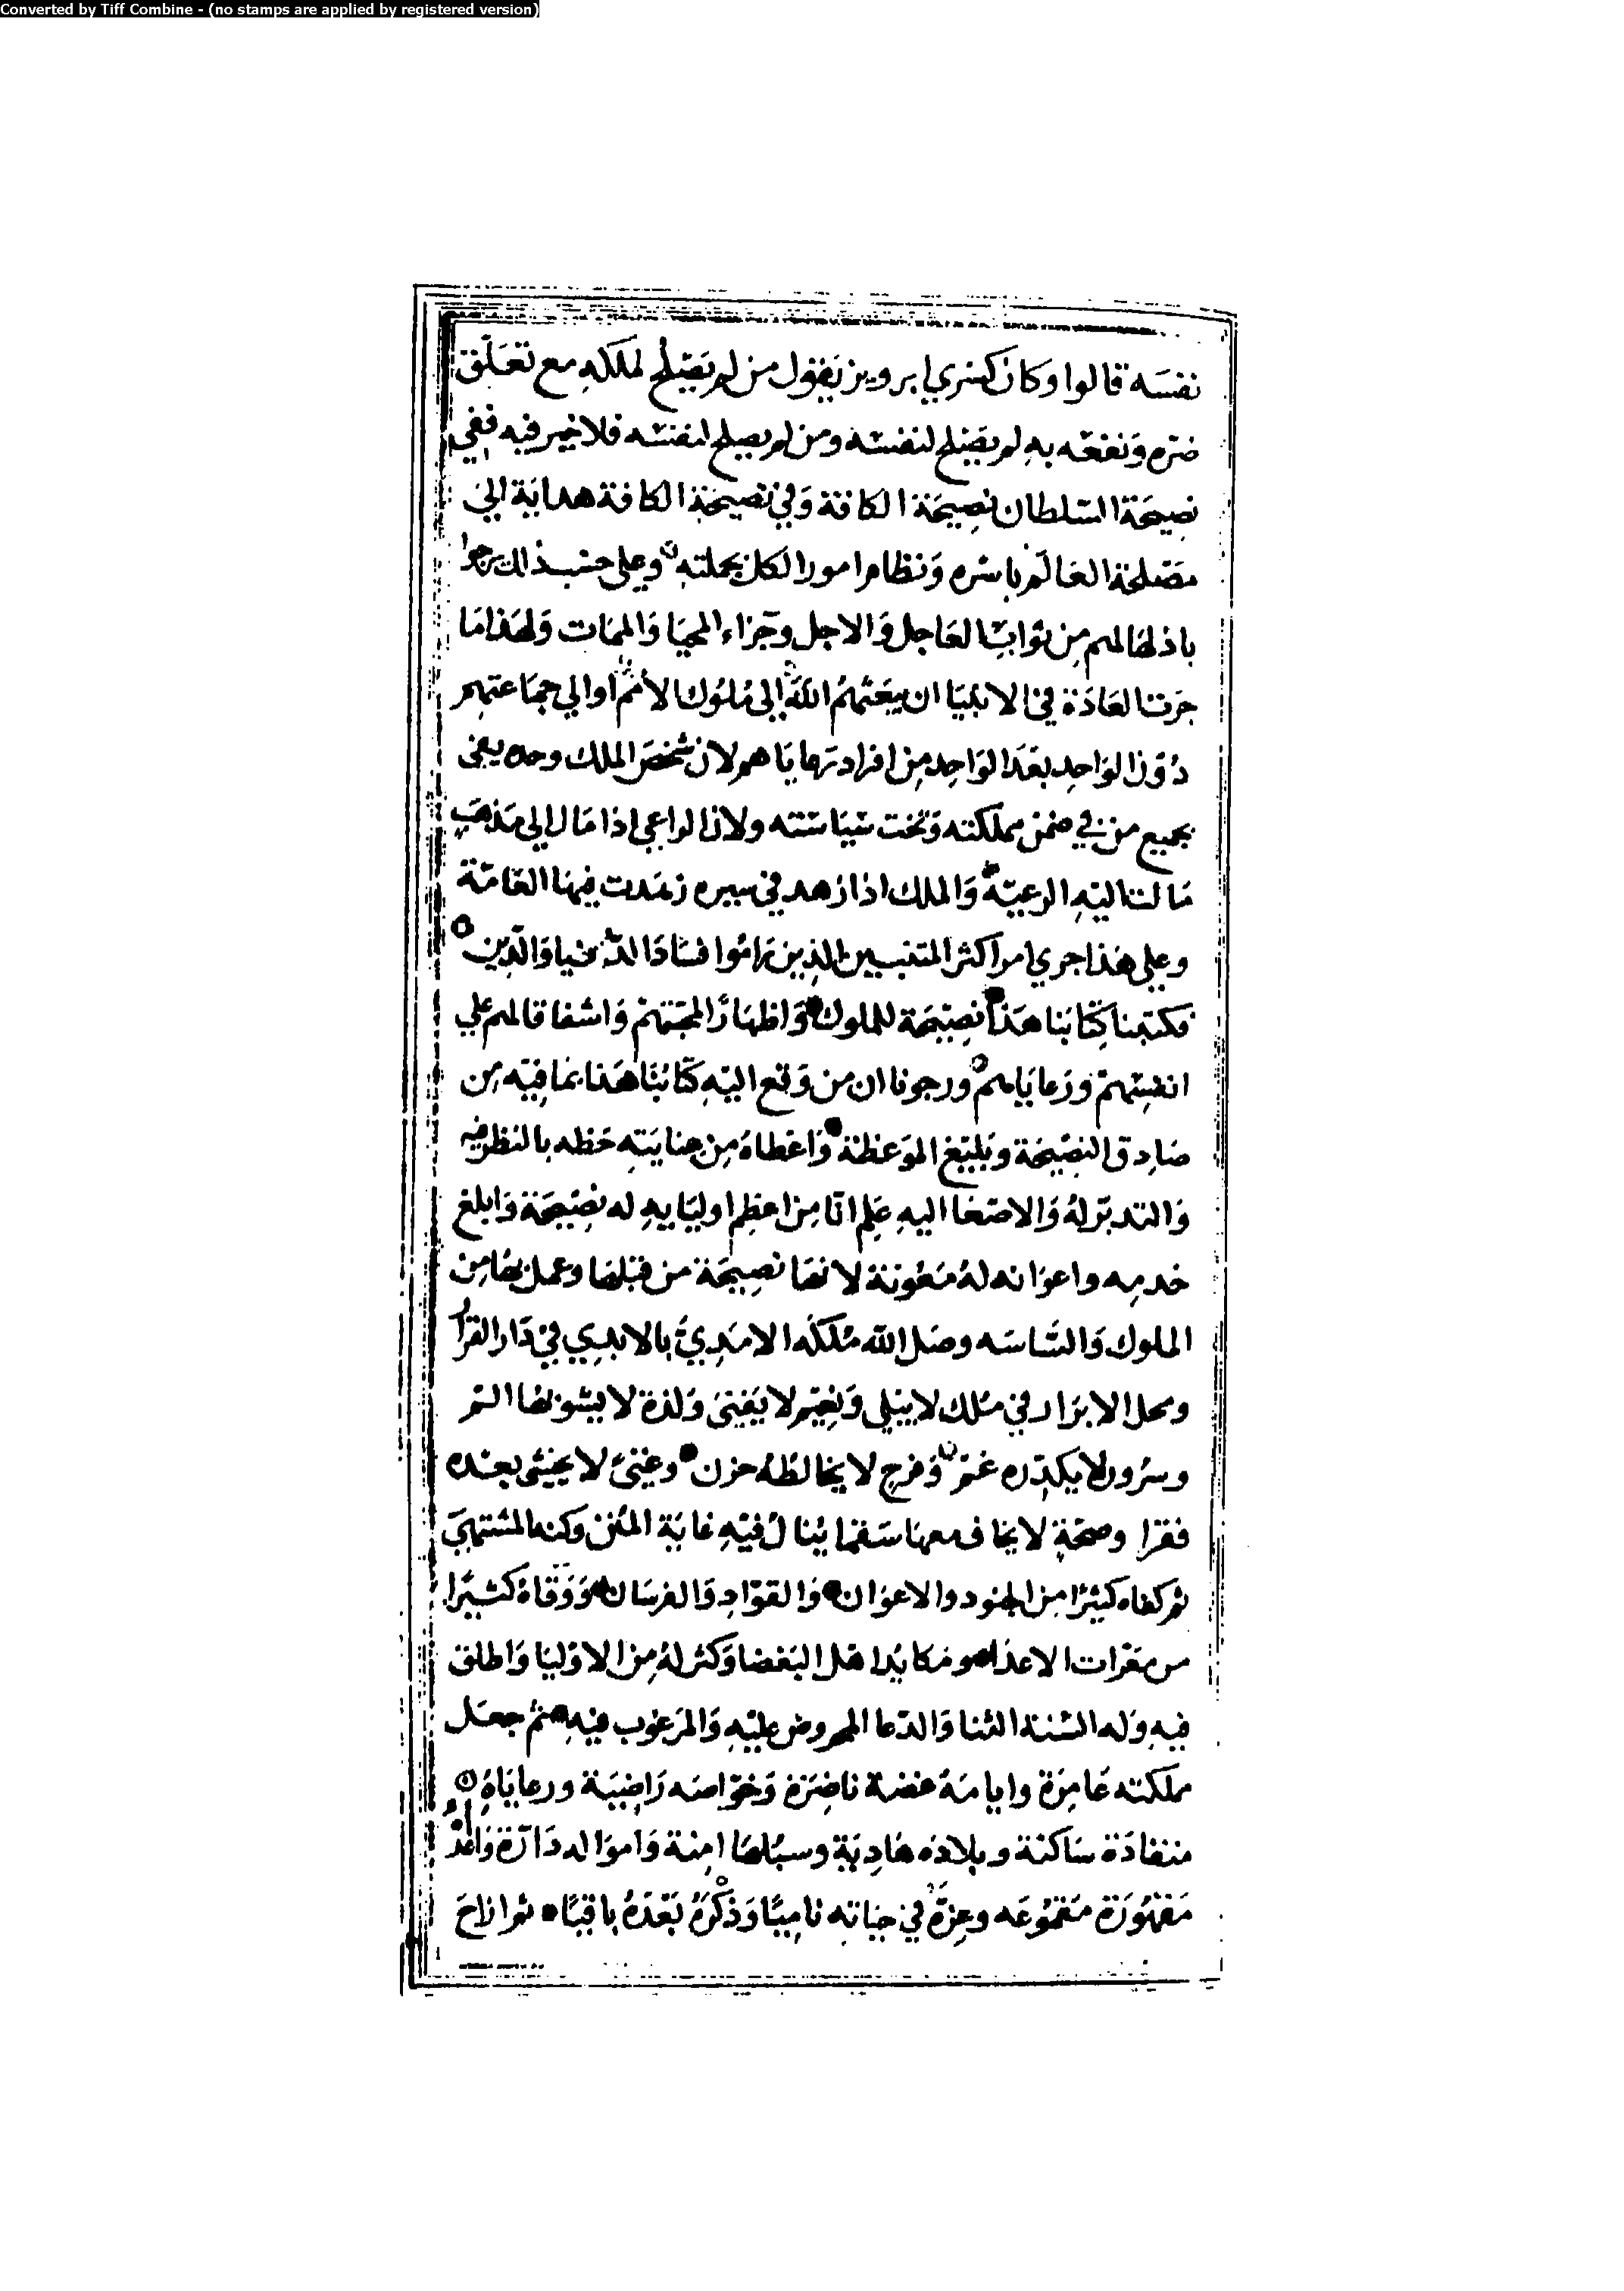 Converted by Tiff Combine - (no stamps are applied by registered version)
نفسَه قالوا وكان كسري ابرويز يَقول من لم يَصْلح لملكهِ مع تعَلّق
ضرّه وَنفعّه بهِ لم يَصْلح لنفسّه ومن لم يصلح لنفسّه فلا خير فيه ففي
نصِيحَة السّلطان نصِيحَة الكافة وَفي نصيحَة الكافة هدايَة الي
مصَلحَة العَالَم باسْره وَنظام امور الكل بجملتهِ وعلي حسَب ذالك يرجوا
باذلهَا لهم مِن ثوَاب العَاجل وَالاجل وجَزاء المحيَا وَالممَات وَلهَذا مَا
جرَت العَادَة في الانبيَا ان يبعَثهمُ اللهَ إلى مُلوُك الأمُم او الي جماعتهم
دُون الوَاحِد بعَدَ الوَاحِد مِن افراد رَعايَا هم لان شخصَ الملك وحده يفى
بجميع من في ضمن مملكته وَتحت سيَاسَتته ولان الراعي اذا مَال الي مَذهَبٍ
مَالت اليَهِ الرعيّة وَالملك اذا زَهد في سيره زهدت فيهَا العَامّة
وعلي هَذا جري امر اكثر المتنبيين الذِين رَامُوا فسَادَ الدّنيا وَالدِّين
فكتبنا كِتَابَنا هَذا نصِيْحَة للملوك وَاظهَارًا لمحَبّتهمْ وَاشفاقا لهم علي
انفسِهمْ ورَعايَاهم ورجونا ان من وَقع اليَهِ كتَابُنَا هَذا بمَا فيَه مِن
صَادِق النصِيْحَة وَبليَغ الموَعظة وَاعَطاهُ مِن عنايَتهِ حَظه بالنظر فيه
وَالتدبّر لهُ وَالاصَغا اليهِ عَلِم انّا مِن اعظِم اوليَايهِ له نصِيْحَة وَابلغ
خدمِه واعوَانه لهُ مَعُونة لانهَا نصِيحَة من قبْلهَا وعمل بهَا مِن
الملوك وَالسَّاسَه وصَل الله مُلكَه الامَدِيَّ بالابدِي في دَار القرَار
ومحل الابرَار في مُلك لا يبْلي وَنعِيَم لا يَفنى وَلذة لا يشوبهَا الم
وسرُور لا يكدّره غمّ وَفرح لا يخالطهُ حزن وغِنىً لا يخشى بعَده
فقرا وصحّةٍ لا يخاف معهَا سَقما يُنال فيَهِ غايَة المُنى وكنه المشتهيَ
ثم كفاه كثيَرًا مِن الجنود والاعوَان وَالقوّادِ وَالفرسَان وَوَقاهُ كثيَرًا
من مَعَرات الاعدَاء ومَكايُد اهَل البَغضا وَكثر لهُ مِن الاوَليَا وَاطلق
فيهِ وَله السْنة الثنا وَالدّعا المحروض عليَهِ وَالمرَغوب فيهِ ثم جعَل
مملكته عَامِرَة وايامَهُ غضة ناضِرَة وَخوّاصَه رَاضِيَة ورعايَاهُ
منقادَة سَاكنة وبلادَه هَادِيَة وسبُلهَا امِنة وَاموَاله دَارّة وَاعْدَاؤه
مَقهُورَة مَقموُعَه وعِزّهَ في حيَاته نامِيًا وَذْكرَهُ بَعْدَهُ باقيًا ثم ازاحَ